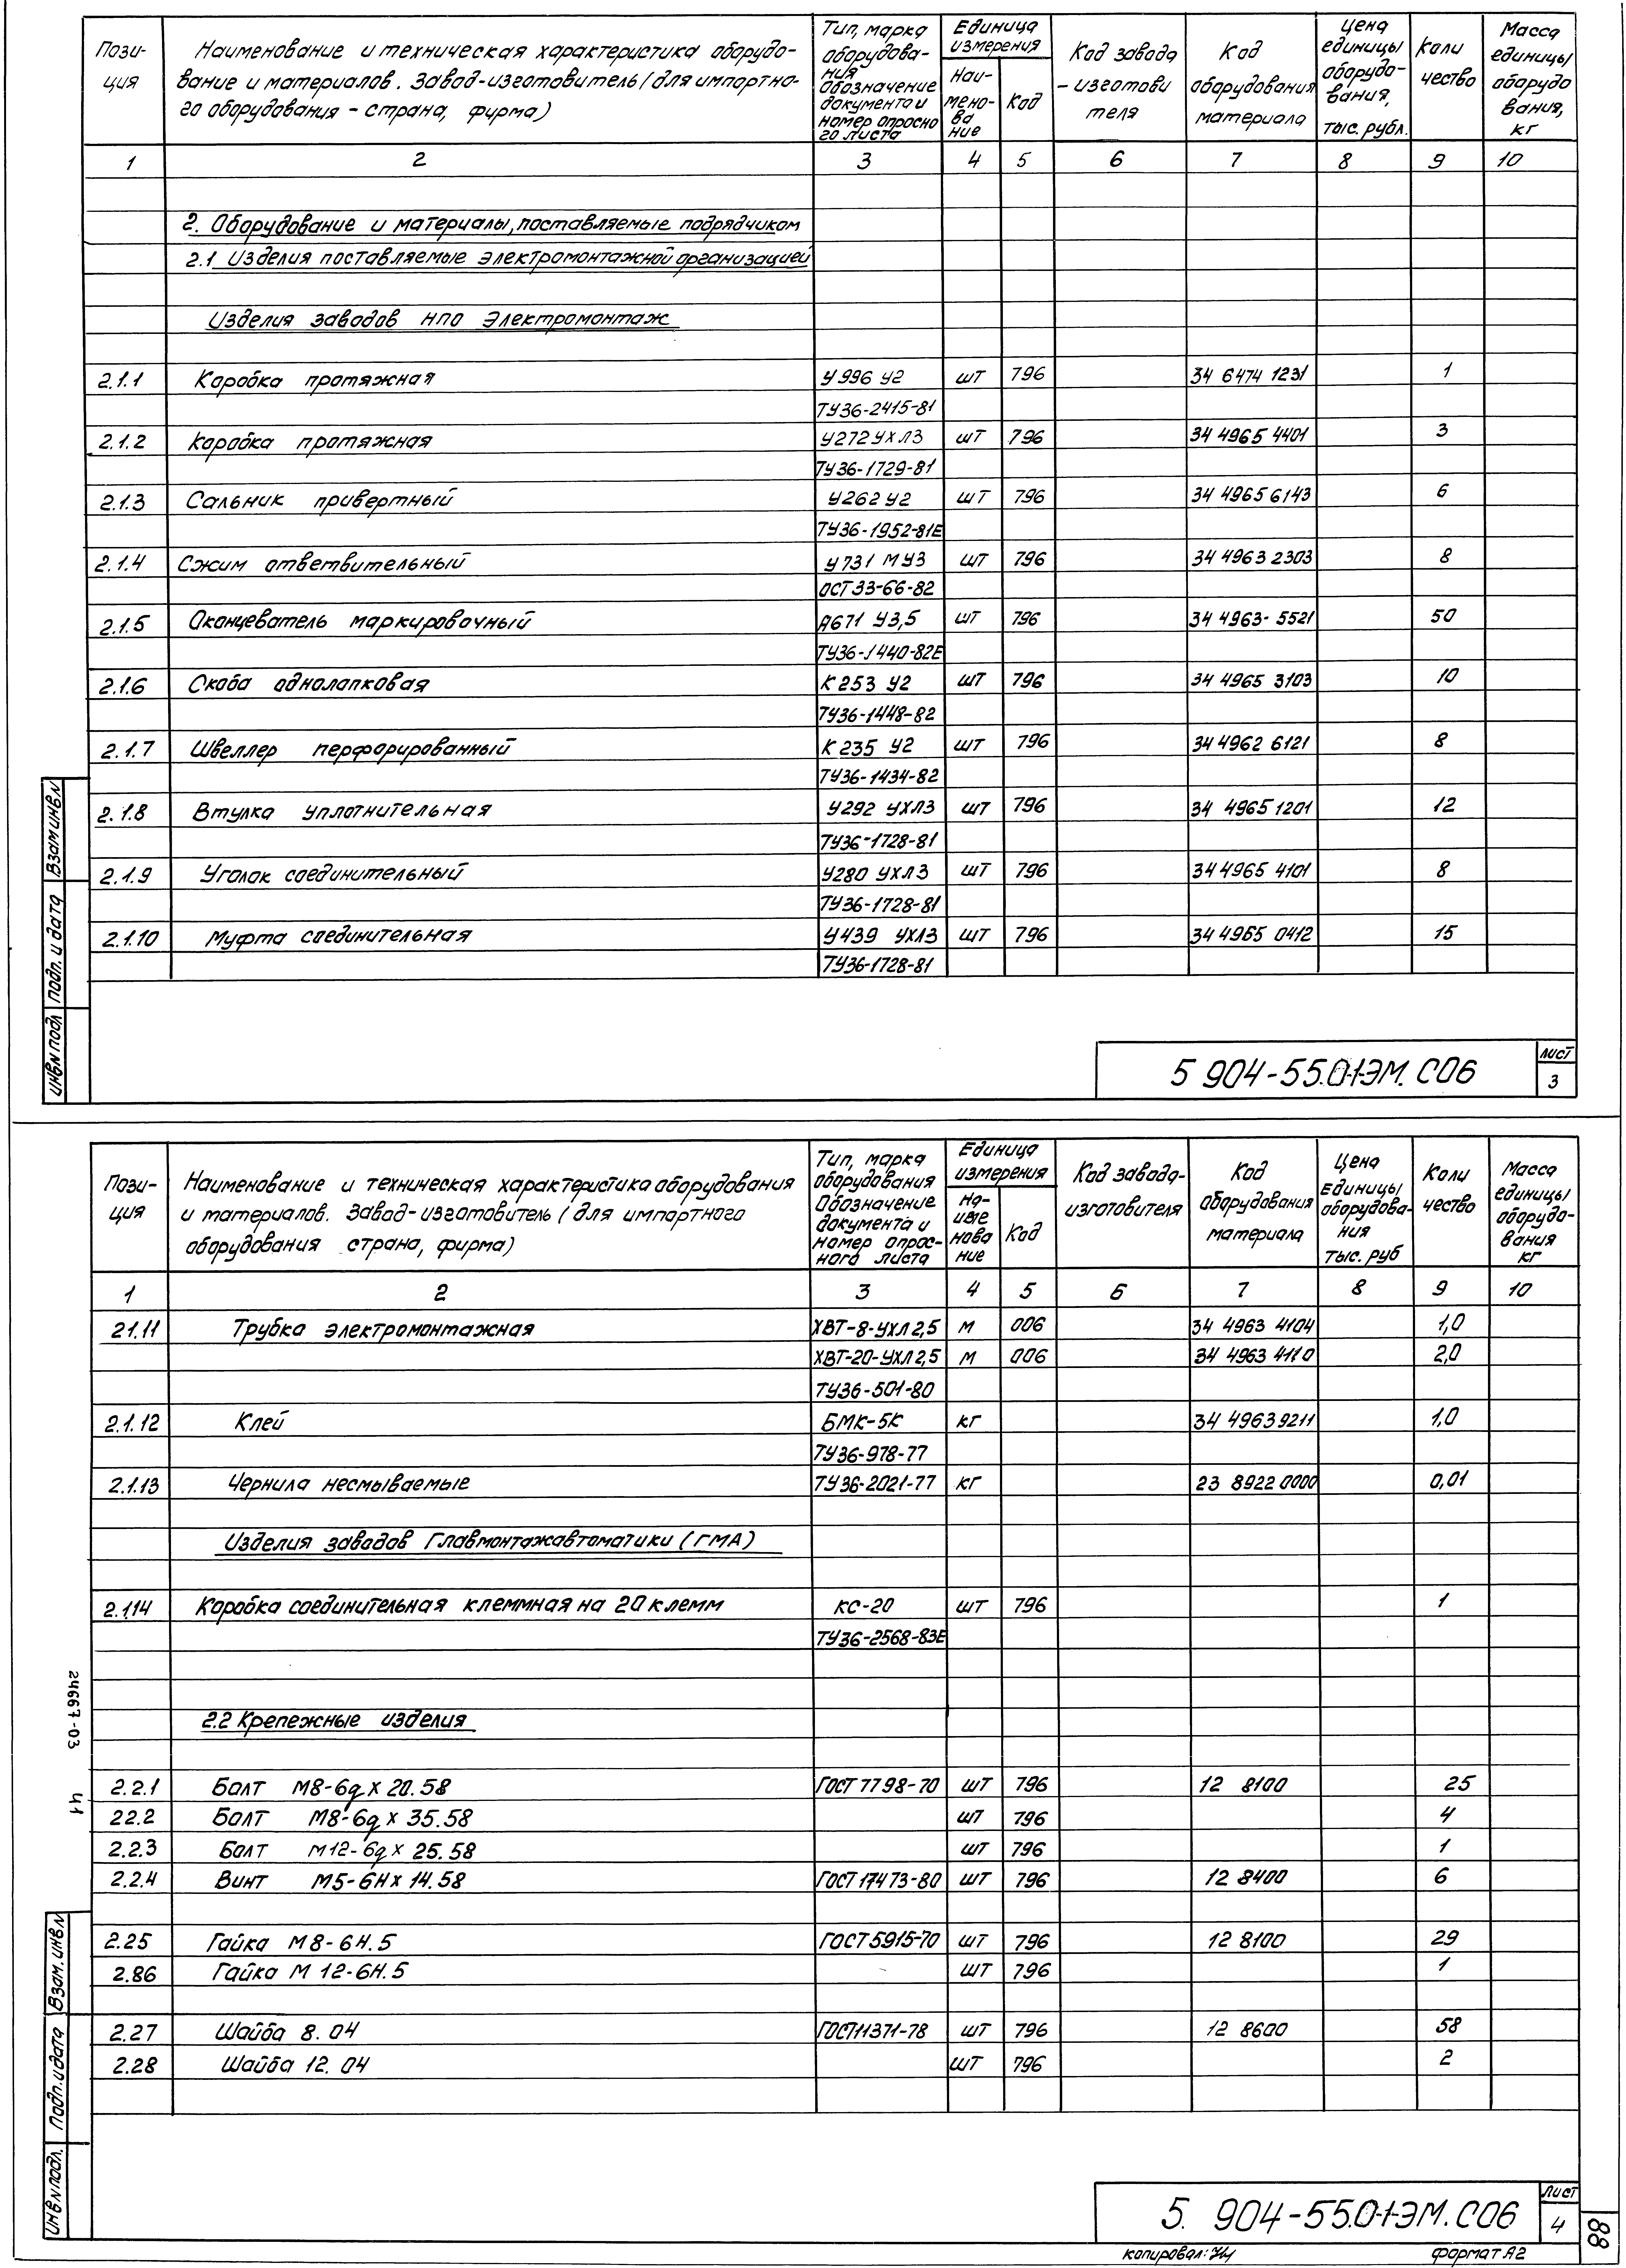 Пози-
ция
Наименование и техническая характеристика оборудо-
вание и материалов. Завод-изготовитель (для импортно-
го оборудования - страна, фирма)
Тип, марка
оборудова-
ния
Обозначение
документа и
номер опросно
го листа
Единица
измерения
Наи-
мено-
ва
ние
Код
Код завода
- изготови
теля
Код
оборудования
материала
Цена
единицы
оборудо-
вания,
тыс. рубл.
Коли
чество
Масса
единицы
оборудо
вания,
кг
1 2 3 4 5 6 7 8 9 10
2. Оборудование и материалы, поставляемые подрядчиком
2.1 Изделия поставляемые электромонтажной организацией
Изделия заводов НПО Электромонтаж
2.1.1 Коробка протяжная У996 У2 шт 796 34 6474 1231 1
ТУ36-2415-81
2.1.2 Коробка протяжная У272УХЛ3 шт 796 34 4965 4401 3
ТУ36-1729-81
2.1.3 Сальник привертный У262 У2 шт 796 34 4965 6143 6
ТУ36-1952-81Е
2.1.4 Сжим ответвительный У731 МУ3 шт 796 34 4963 2303 8
ОСТ33-66-82
2.1.5 Оконцеватель маркировочный А671 У3,5 шт 796 34 4963-5521 50
ТУ36-1440-82Е
2.1.6 Скоба однолапковая К253 У2 шт 796 34 4965 3103 10
ТУ36-1448-82
2.1.7 Швеллер перфорированный К235 У2 шт 796 34 4962 6121 8
ТУ36-1434-82
2.1.8 Втулка уплотнительная У292 УХЛ3 шт 796 34 4965 1201 12
ТУ36-1728-81
2.1.9 Уголок соединительный У280 УХЛ3 шт 796 34 4965 4101 8
ТУ36-1728-81
2.1.10 Муфта соединительная У439 УХЛ3 шт 796 34 4965 0412 15
ТУ36-1728-81
Инв N подл Подп. и дата Взам инв N
5 904-55.0-1-ЭМ. СО6
лист
3
Пози-
ция
Наименование и техническая характеристика оборудования
и материалов. Завод-изготовитель (для импортного
оборудования страна, фирма)
Тип, марка
оборудования
Обозначение
документа и
номер опрос-
ного листа
Единица
измерения
На-
име
нова
ние
Код
Код завода-
изготовителя
Код
оборудования
материала
Цена
Единицы
оборудова-
ния
тыс. руб
Коли
чество
Масса
единицы
оборудо-
вания
кг
1 2 3 4 5 6 7 8 9 10
21.11 Трубка электромонтажная ХВТ-8-УХЛ2,5 м 006 34 4963 4104 1,0
ХВТ-20-УХЛ2,5 м 006 34 4963 4110 2,0
ТУ36-501-80
2.1.12 Клей БМК-5К кг 34 4963 9211 1,0
ТУ36-978-77
2.1.13 Чернила несмываемые ТУ36-2021-77 кг 23 8922 0000 0,01
Изделия заводов Главмонтажавтоматики (ГМА)
2.1.14 Коробка соединительная клеммная на 20 клемм КС-20 шт 796 1
ТУ36-2568-83Е
2.2 Крепежные изделия
2.2.1 Болт М8-6g x 20.58 ГОСТ 7798-70 шт 796 12 8100 25
22.2 Болт М8-6g x 35.58 шт 796 4
2.2.3 Болт М12-6g x 25.58 шт 796 1
2.2.4 Винт М5-6Н x 14.58 ГОСТ 17473-80 шт 796 12 8400 6
2.25 Гайка М8-6Н.5 ГОСТ5915-70 шт 796 12 8100 29
2.86 Гайка М 12-6Н.5 шт 796 1
2.27 Шайба 8.04 ГОСТ11371-78 шт 796 12 8600 58
2.28 Шайба 12.04 шт 796 2
24667-03 41
Инв N подл. Подп. и дата Взам. инв N
5. 904-55.0-1-ЭМ. СО6
лист
4
88
копировал:
формат А2